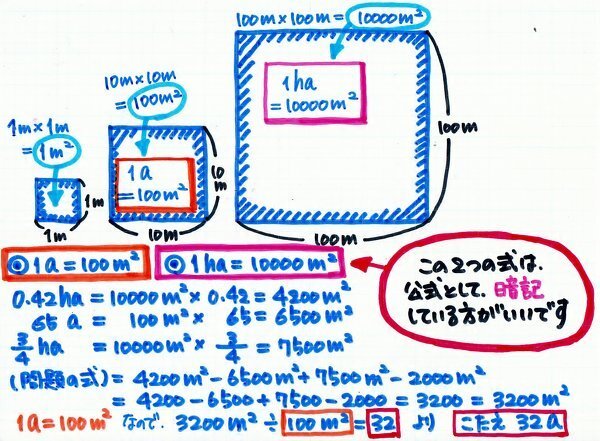 100m×100m = 10000m²
10m×10m
= 100m²
1m×1m
= 1m²
1ha
= 10000m²
1a
= 100m²
100m
10m
1m
1m
10m
100m
◎1a = 100m²
◎1ha = 10000m²
この2つの式は、
公式として、暗記
している方がいいです
0.42ha = 10000m² × 0.42 = 4200m²
65a = 100m² × 65 = 6500m²
3/4 ha = 10000m² × 3/4 = 7500m²
(問題の式) = 4200m² - 6500m² + 7500m² - 2000m²
= 4200 - 6500 + 7500 - 2000 = 3200 = 3200m²
1a = 100m² なので、3200m² ÷ 100m² = 32 より こたえ 32a